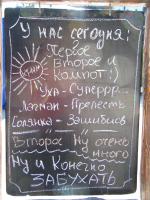 У нас сегодня:
Первое
Второе и
компот :)
Уха - Суперрр...
Лагман - Прелесть
Солянка - Зашибись
Второе Ну очень
много
Ну и Конечно
ЗАБУХАТЬ